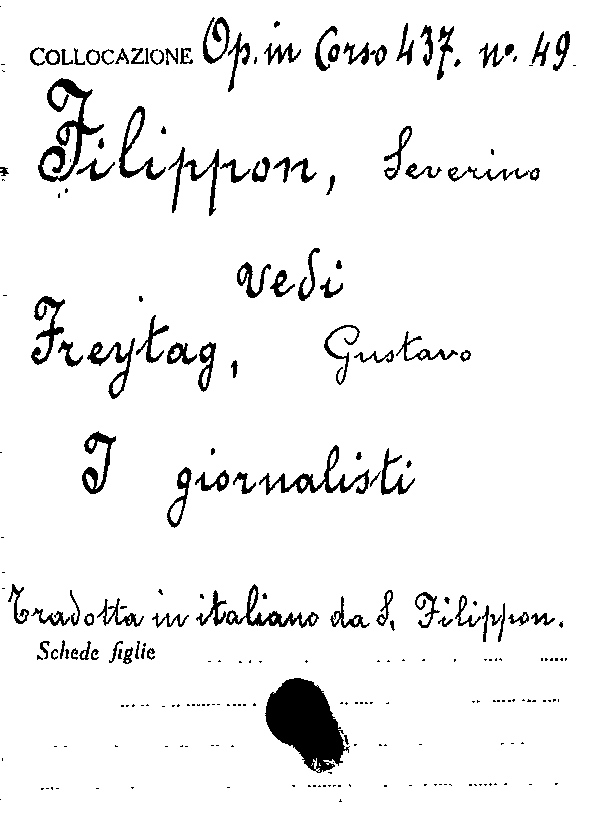 COLLOCAZIONE Op. in Corso 437. nº. 49
Filippon, Severino
vedi
Freytag, Gustavo
I giornalisti
Tradotta in italiano da S. Filippon.
Schede figlie